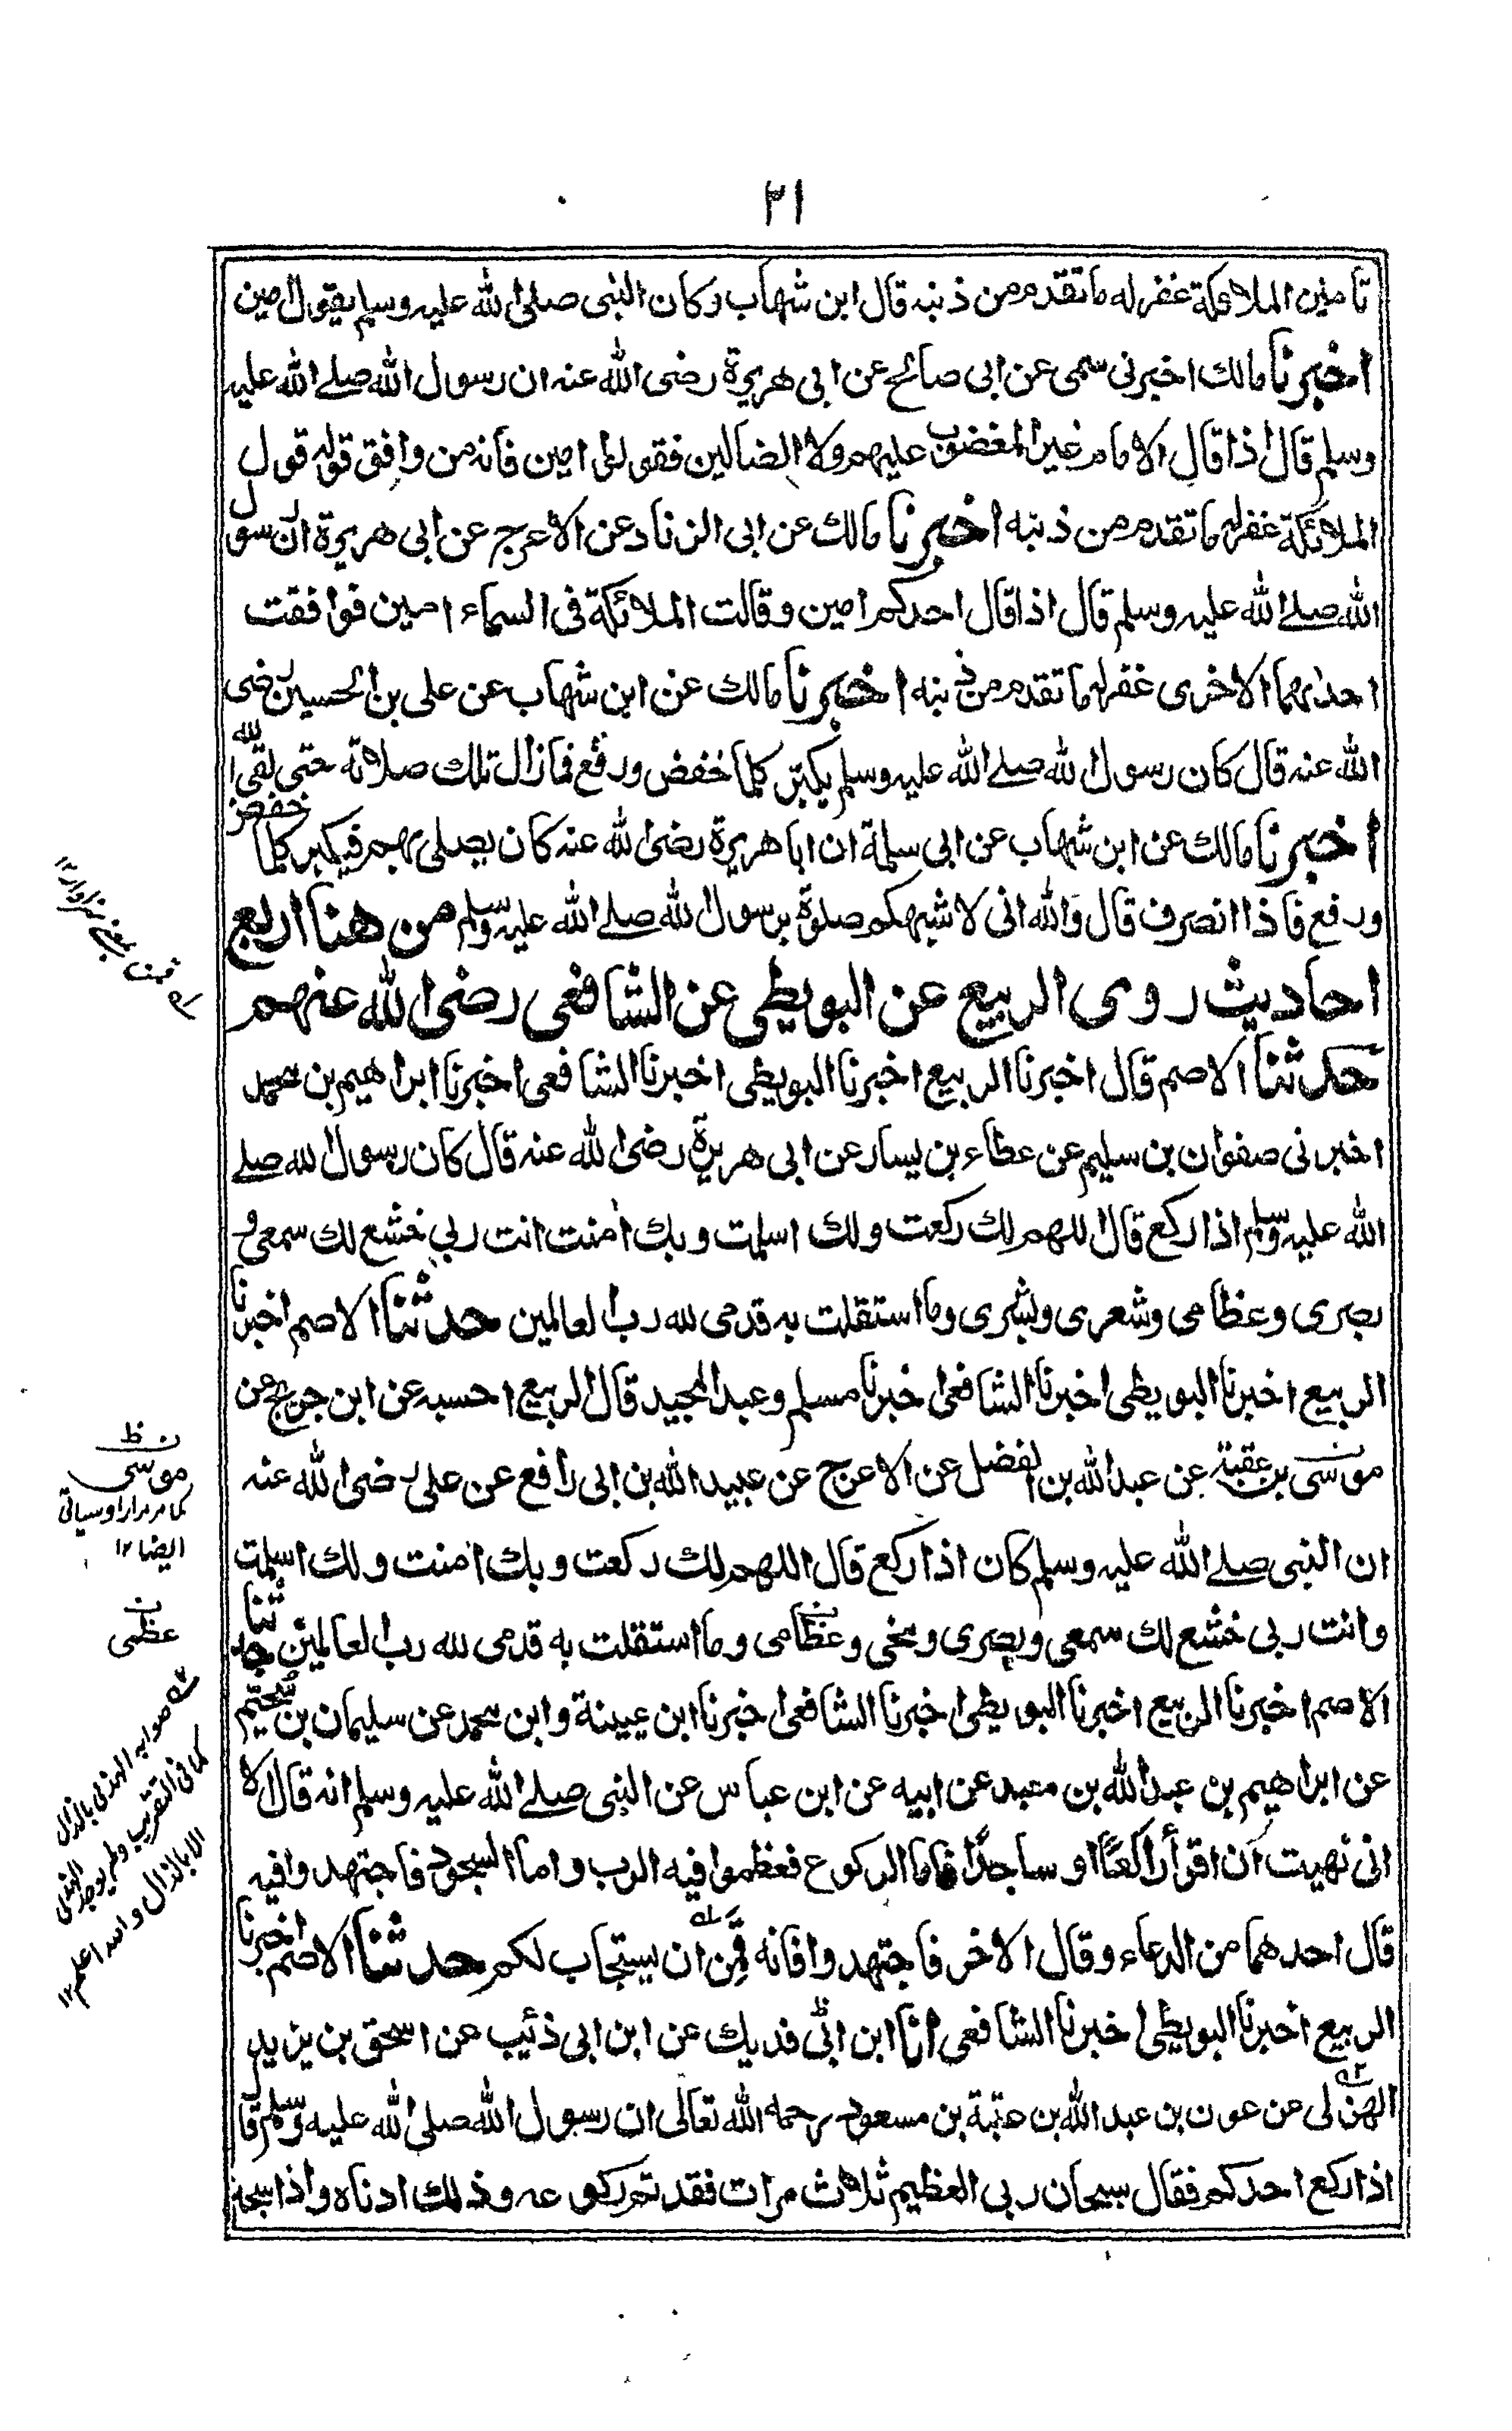 ٢١
تامين الملائكة غفر له ما تقدم من ذنبه قال ابن شهاب وكان النبى صلى الله عليه وسلم يقول امين
اخبرنا مالك اخبرنى سمى عن ابى صالح عن ابى هريرة رضى الله عنه ان رسول الله صلے الله عليه
وسلم قال اذا قال الامام غير المغضوب عليهم ولا الضالين فقولوا امين فانه من وافق قوله قول
الملائكة غفر له ما تقدم من ذنبه اخبرنا مالك عن ابى الزناد عن الاعرج عن ابى هريرة ان رسول
الله صلے الله عليه وسلم قال اذا قال احدكم امين وقالت الملائكة فى السماء امين فوافقت
احدٰهما الاخرى غفر له ما تقدم من ذنبه اخبرنا مالك عن ابن شهاب عن على بن الحسين رضى
الله عنه قال كان رسول الله صلے الله عليه وسلم يكبّر كلما خفض ورفع فما زال تلك صلاته حتى لقى الله
اخبرنا مالك عن ابن شهاب عن ابى سلمة ان ابا هريرة رضى الله عنه كان يصلى بهم فيكبر كلما خفض
ورفع فاذا انصرف قال والله انى لاشبهكم صلوة برسول الله صلے الله عليه وسلم من هنا اربع
احاديث روى الربيع عن البويطى عن الشافعى رضى الله عنهم
حدثنا الاصم قال اخبرنا الربيع اخبرنا البويطى اخبرنا الشافعى اخبرنا ابراهيم بن محمد
اخبرنى صفوان بن سليم عن عطاء بن يسار عن ابى هريرة رضى الله عنه قال كان رسول الله صلے
الله عليه وسلم اذا ركع قال اللهم لك ركعت ولك اسلمت وبك اٰمنت انت ربى خشع لك سمعى و
بصرى وعظامى وشعرى وبشرى وما استقلت به قدمى لله رب العالمين حدثنا الاصم اخبرنا
الربيع اخبرنا البويطى اخبرنا الشافعى اخبرنا مسلم وعبد المجيد قال الربيع احسبه عن ابن جريج عن
موسى بن عقبة عن عبد الله بن الفضل عن الاعرج عن عبيد الله بن ابى رافع عن على رضى الله عنه
ان النبى صلے الله عليه وسلم كان اذا ركع قال اللهم لك ركعت وبك اٰمنت ولك اسلمت
وانت ربى خشع لك سمعى وبصرى ومخى وعظامى وما استقلت به قدمى لله رب العالمين حدثنا
الاصم اخبرنا الربيع اخبرنا البويطى اخبرنا الشافعى اخبرنا ابن عيينة وابن محمد عن سليمان بن سُحَيم
عن ابراهيم بن عبد الله بن معبد عن ابيه عن ابن عباس عن النبى صلے الله عليه وسلم انه قال الا
انى نهيت ان اقرأ راكعًا او ساجدًا فاما الركوع فعظموا فيه الرب واما السجود فاجتهدوا فيه
قال احدهما من الدعاء وقال الاخر فاجتهدوا فانه قمن ان يستجاب لكم حدثنا الاصم اخبرنا
الربيع اخبرنا البويطى اخبرنا الشافعى انا ابن ابى فديك عن ابن ابى ذئب عن اسحق بن يزيد
الهذلى عن عون بن عبد الله بن عتبة بن مسعود رحمه الله تعالى ان رسول الله صلى الله عليه وسلم قا
اذا ركع احدكم فقال سبحان ربى العظيم ثلاث مرات فقد تم ركوعه وذلك ادناه واذا سجد
ن ظ
موسى
كما مر مرارا وسياتى
ايضا ١٢
ن
عظمى
صوابه الهذلى بالذال
كما فى التقريب ولم يوجد الهندى
الا بالذال والله اعلم ١٢